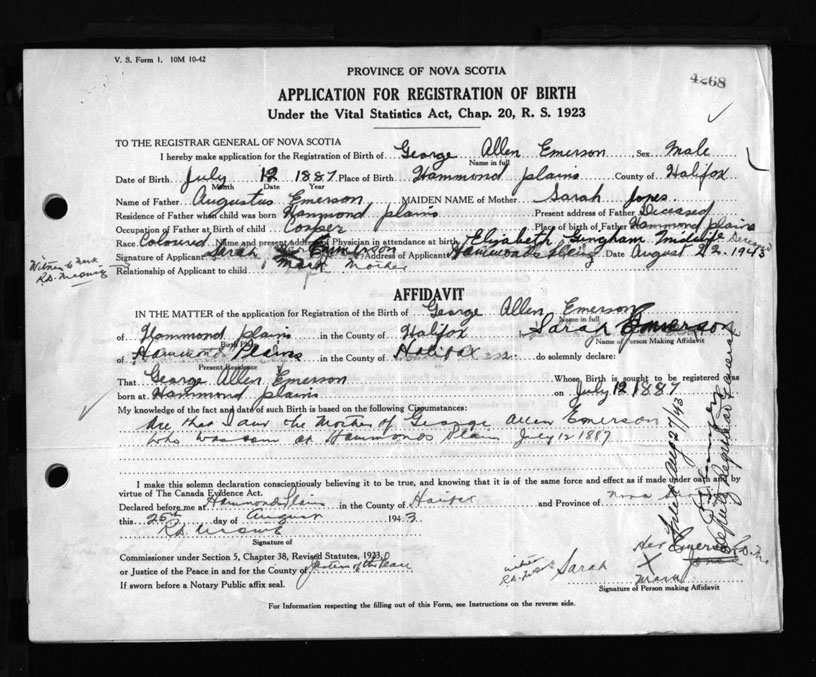 V. S. Form 1. 10M 10-42
4268
PROVINCE OF NOVA SCOTIA
APPLICATION FOR REGISTRATION OF BIRTH
Under the Vital Statistics Act, Chap. 20, R. S. 1923
TO THE REGISTRAR GENERAL OF NOVA SCOTIA
I hereby make application for the Registration of Birth of George Allen Emerson Sex Male
Name in full
Date of Birth July 12 1887 Place of Birth Hammond plains County of Halifax
Month Date Year
Name of Father Augustus Emerson MAIDEN NAME of Mother Sarah Jones
Residence of Father when child was born Hammond plains Present address of Father Deceased
Occupation of Father at Birth of child Cooper Place of birth of Father Hammond plains
Race Coloured Name and present address of Physician in attendance at birth Elizabeth Gingham Midwife
Signature of Applicant Sarah her X Emerson Address of Applicant Hammonds Plains Date August 22 1943
mark
Relationship of Applicant to child Mother
Witness to Mark
AFFIDAVIT
IN THE MATTER of the application for Registration of the Birth of George Allen Emerson
Name in full
of Hammond plains in the County of Halifax I, Sarah Emerson
Birth Place Name of Person Making Affidavit
of Hammond Plains in the County of Halifax do solemnly declare:
Present Residence
That George Allen Emerson Whose Birth is sought to be registered was
born at Hammond plains on July 12 1887
My knowledge of the fact and date of such Birth is based on the following Circumstances:
Are that I am the Mother of George Allen Emerson
who was born at Hammonds Plain July 12 1887
I make this solemn declaration conscientiously believing it to be true, and knowing that it is of the same force and effect as if made under oath and by
virtue of The Canada Evidence Act.
Declared before me at Hammonds Plain in the County of Halifax and Province of Nova Scotia
this 25th day of August 1943.
Signature of
Commissioner under Section 5, Chapter 38, Revised Statutes, 1923,
or Justice of the Peace in and for the County of Justice of the Peace
If sworn before a Notary Public affix seal.
witness Sarah Her X mark Emerson
Signature of Person making Affidavit
Filed Aug 27/43
Deputy Registrar General
For Information respecting the filling out of this Form, see Instructions on the reverse side.